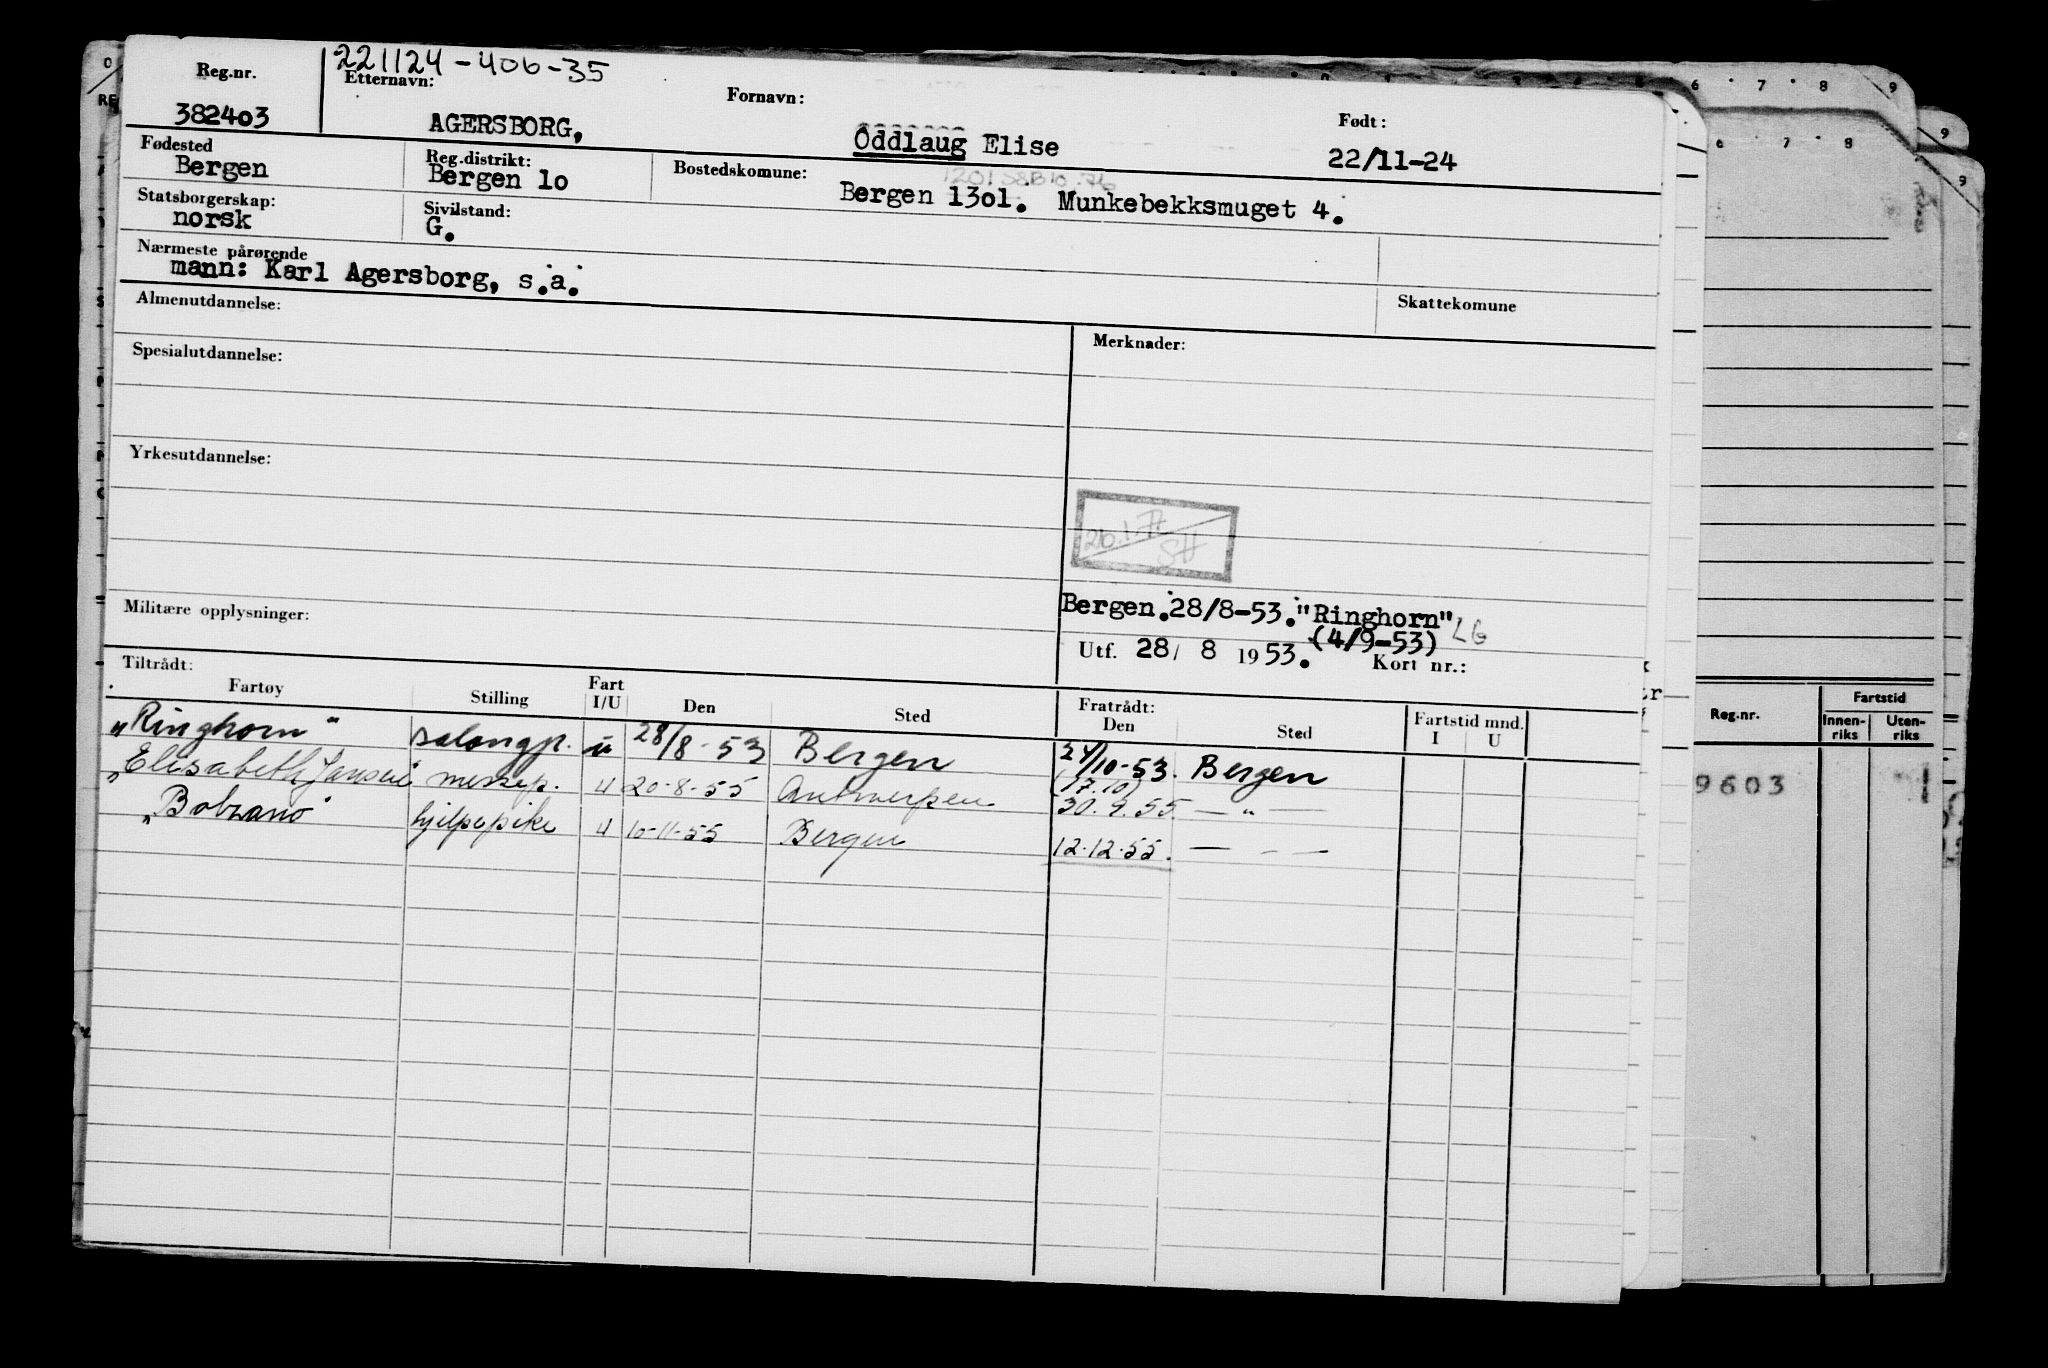 221124-406-35
Reg.nr. Etternavn: Fornavn: Født:
382403 AGERSBORG, Oddlaug Elise 22/11-24
Fødested Reg.distrikt: Bostedskomune:
Bergen Bergen 1o Bergen 13o1. Munkebekksmuget 4.
Statsborgerskap: Sivilstand:
norsk G.
Nærmeste pårørende
mann: Karl Agersborg, s.a.
Almenutdannelse: Skattekomune
Spesialutdannelse: Merknader:
Yrkesutdannelse:
Militære opplysninger:
Bergen.28/8-53."Ringhorn" LG
(4/9-53)
Utf. 28/ 8 1953. Kort nr.:
Tiltrådt: Fratrådt:
Fartøy Stilling Fart I/U Den Sted Den Sted Fartstid mnd. I U
„Ringhorn" salongp. u 28/8-53 Bergen 24/10-53. Bergen
(17.10)
„Elisabeth Jansen" messep. u 20-8-55 Antwerpen 30.9.55 — " —
„Bolzano" hjelpepike u 10-11-55 Bergen 12.12.55. — - —
Reg.nr. Fartstid
Innen-riks Uten-riks
9603